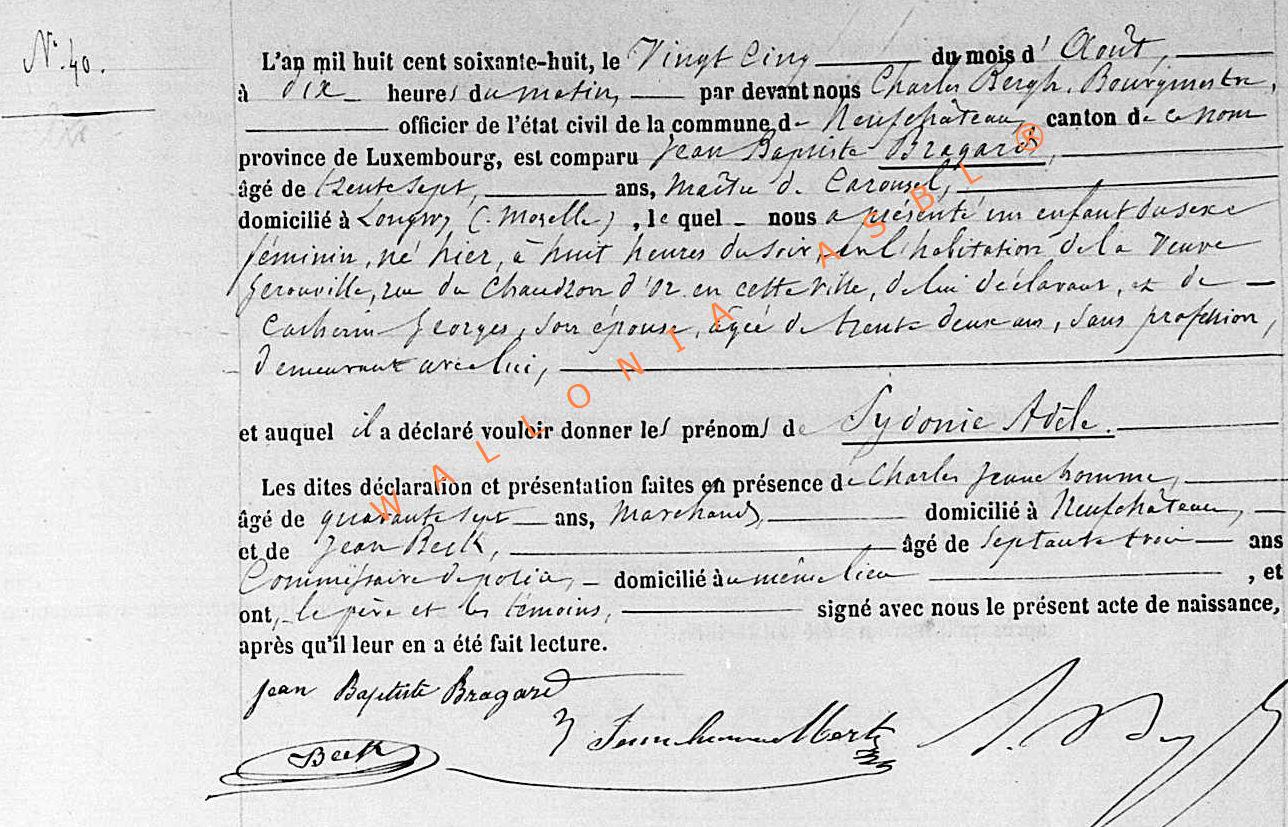 N° 40.
L'an mil huit cent soixante-huit, le Vingt Cinq du mois d' Août,
à dix heures du matin, par devant nous Charles Bergh, Bourgmestre,
officier de l'état civil de la commune de Neufchâteau, canton de ce nom
province de Luxembourg, est comparu Jean Baptiste Bragard,
âgé de trente sept, ans, Maître de Carousel,
domicilié à Longwy (Moselle), le quel nous a présenté un enfant du sexe
féminin, né hier, à huit heures du soir, en l'habitation de la Veuve
Gerouville, rue du Chaudron d'Or en cette ville, de lui déclarant, et de
Catherine Georges, son épouse, âgée de trente deux ans, sans profession,
demeurant avec lui,
et auquel il a déclaré vouloir donner les prénoms de Sydonie Adèle.
Les dites déclaration et présentation faites en présence de Charles Jeanhomme,
âgé de quarante sept ans, Marchand, domicilié à Neufchâteau,
et de Jean Beck, âgé de septante trois ans
Commissaire de police, domicilié au même lieu , et
ont, le père et les témoins, signé avec nous le présent acte de naissance,
après qu'il leur en a été fait lecture.
Jean Baptiste Bragard
Beck
WALLONIA ASBL ®